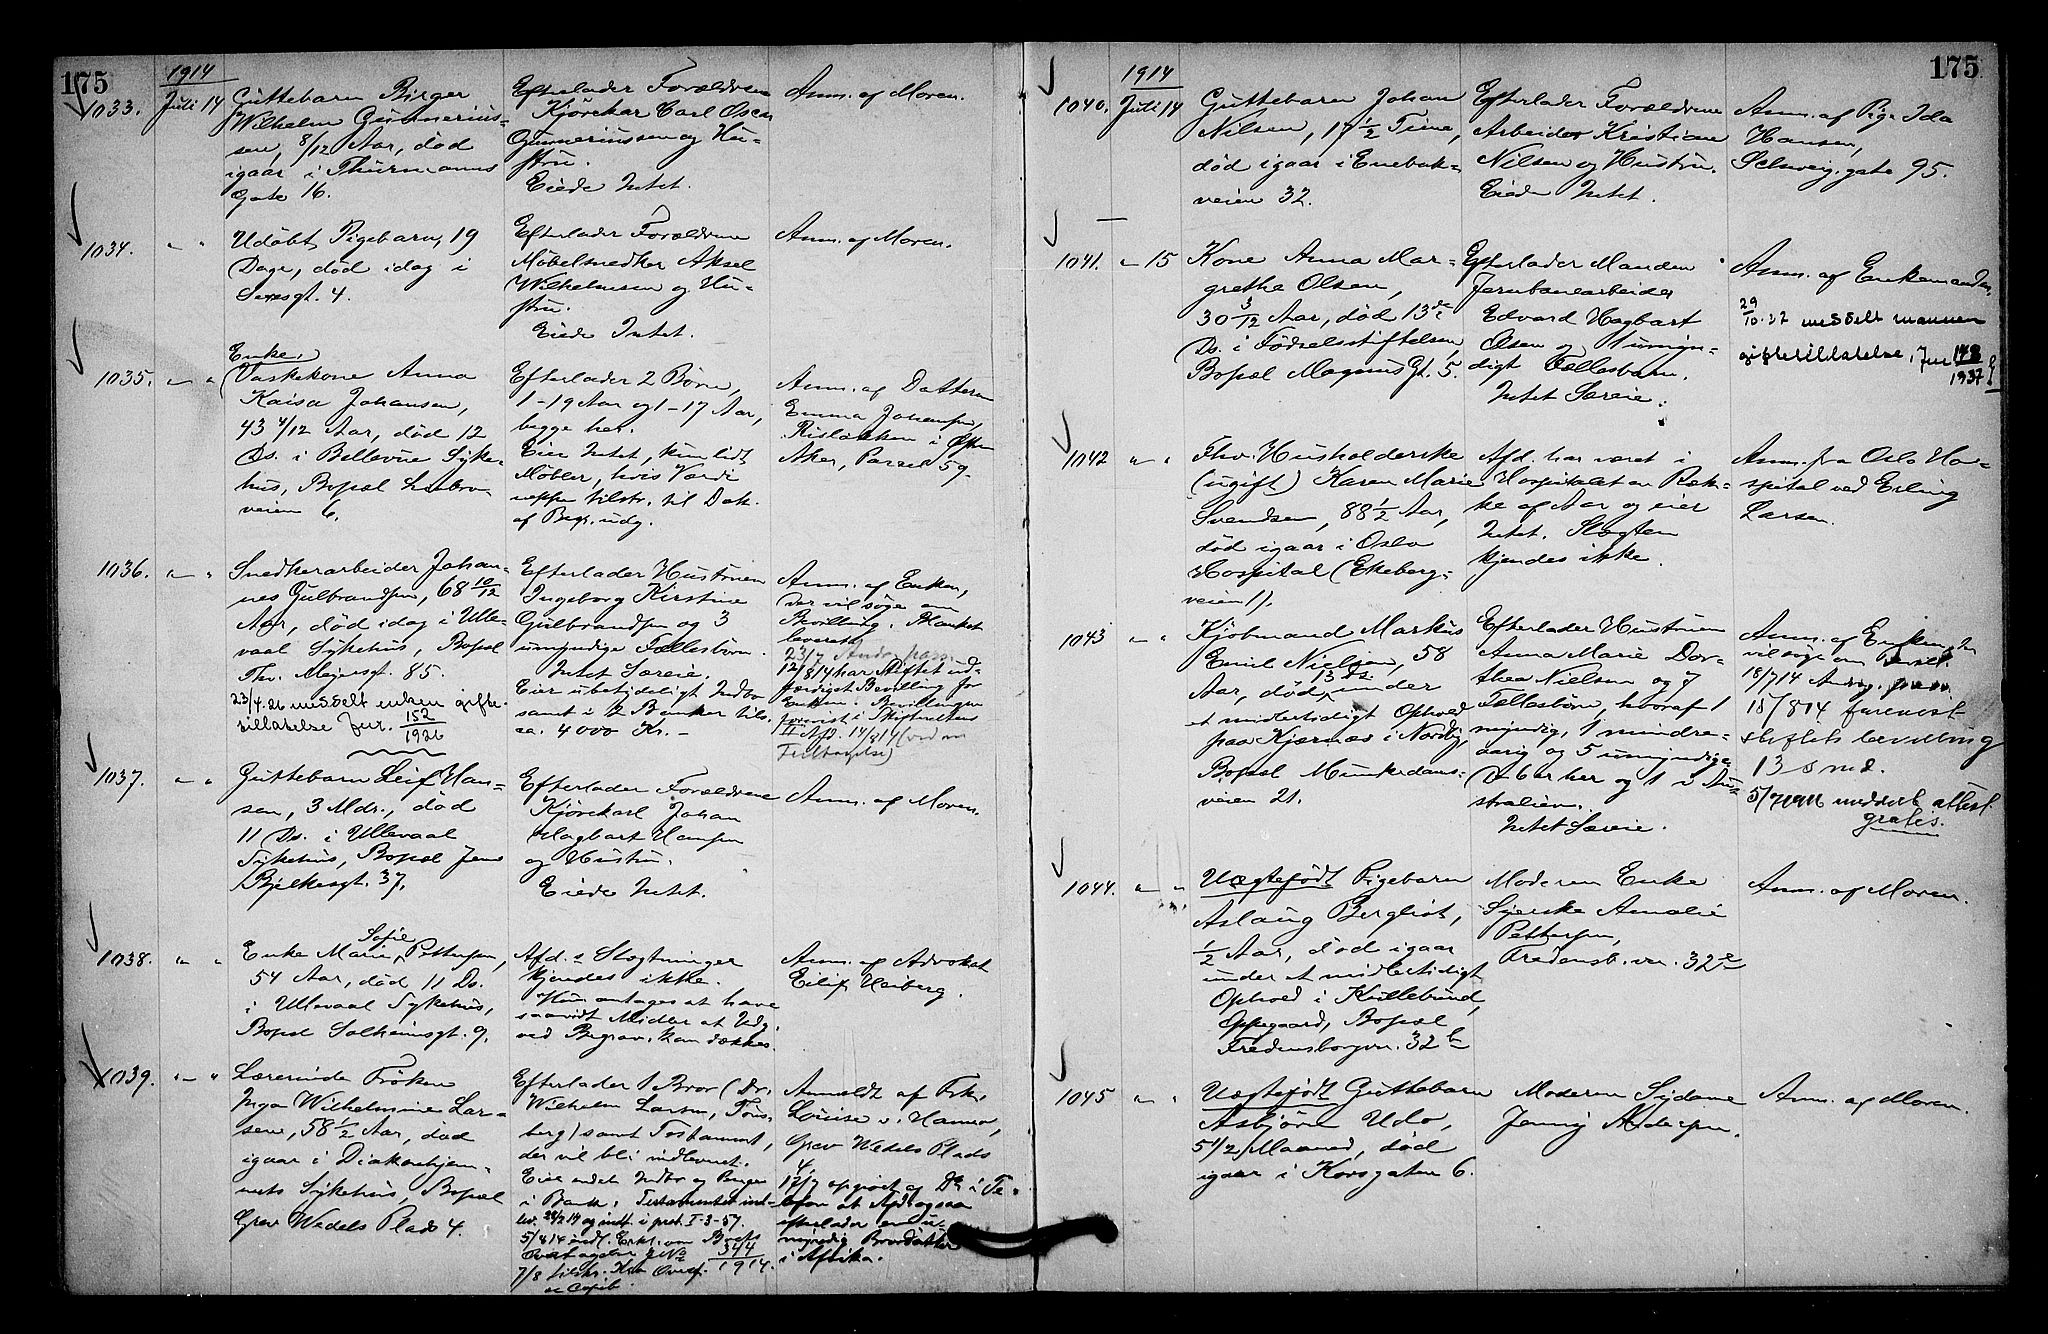 175
1914
1033. Juli 14 Guttebarn Birger
Wilhelm Gunnerius-
sen, 8/12 Aar, død
igaar i Thurmanns
Gate 16.
Efterlader Forældrene
Kjørekar Carl Oscar
Gunneriussen og Hu-
stru.
Eiede Intet.
Anm. af Moren.
1034. " "
Udøbt Pigebarn, 19
Dage, død idag i
Sexesgt. 4.
Efterlader Forældrene
Møbelsnedker Aksel
Wilhelmsen og Hu-
stru.
Eiede Intet.
Anm. af Moren.
1035. " "
Enke,
Vaskekone Anna
Kaisa Johansen,
43 4/12 Aar, død 12
Ds. i Bellevue Syke-
hus, Bopæl
veien 6.
Efterlader 2 Børn,
1-19 Aar og 1-17 Aar,
begge her.
Eier Intet, kun lidt
Møbler, hvis Værdi
neppe tilstr. til Dæk.
af Begr. udg.
Anm. af Datteren
Emma Johansen,
Risløkken i Østre
Aker, Parcel 59.
1036. " "
Snedkerarbeider Johan-
nes Gulbrandsen, 68 10/12
Aar, død idag i Ulle-
vaal Sykehus, Bopæl
Thv. Meyersgt. 85.
23/4.26 meddelt enken gifte-
tillatelse Jnr. 152/1926
Efterlader Hustruen
Ingeborg Kirstine
Gulbrandsen og 3
umyndige Fællesbørn.
Intet Særeie.
Eier ubetydeligt Indbo
samt i 2 Banker tils.
ca. 4000 Kr. -
Anm. af Enken,
der vil søge om
Bevilling. Blanket
leveret.
23/7 Andr. pass.
12/8 14 har Stiftet ud-
færdiget Bevilling for
Enken. Bevillingen
forevist i Skifteretten
II Afd. 14/8 14
1037. " "
Guttebarn Leif Han-
sen, 3 Mdr., død
11 Ds. i Ullevaal
Sykehus, Bopæl Jens
Bjelkesgt. 37.
Efterlader Forældrene
Kjørekarl Johan
Hagbart Hansen
og Hustru.
Eiede Intet.
Anm. af Moren.
1038. " "
Enke Marie Sofie Pettersen,
54 Aar, død 11 Ds.
i Ullevaal Sykehus,
Bopæl Solheimsgt. 9.
Afd.s Slægtninger
kjendes ikke.
Hun antages at have
saavidt Midler at Udg.
ved Begrav. kan dækkes.
Anm. af Advokat
Eilif Heiberg.
1039. " "
Lærerinde Frøken
Inga Wilhelmine Lar-
sen, 58 1/2 Aar, død
igaar i Diakonhjem-
mets Sykehus, Bopæl
Grev Wedels Plads 4.
Efterlader 1 Bror (Dr.
Wilhelm Larsen, Tøns-
berg) samt Testament,
der vil bli indleveret.
Eier endel Indbo og Penge
i Bank. Testamentet ind-
lev. og indt. i prot. I-3-57.
5/8 14 indl. Erkl. om Boets
Overtagelse JNo 344/1914.
7/8 tilstr.
Anmeldt af Frk.
Louise v. Hanno,
Grev Wedels Plads
4.
17/7 opgivet af Do i Te-
lefon at Afd. ogsaa
efterlader en u-
myndig Brordatter
i Afrika.
175
1914
1040. Juli 14
Guttebarn Johan
Nilsen, 17 1/2 Time,
død igaar i Enebak-
veien 32.
Efterlader Forældrene
Arbeider Kristian
Nilsen og Hustru.
Eiede Intet.
Anm. af Pige Ida
Hansen,
Schweig.gate 95.
1041. " 15
Kone Anna Mar-
grethe Olsen,
30 3/12 Aar, død 13de
Ds. i Fødselsstiftelsen,
Bopæl Magnus Gt. 5.
Efterlader Manden
Jernbanearbeider
Edvard Hagbart
Olsen og 1 umyn-
digt Fællesbarn.
Intet Særeie.
Anm. af Enkemanden.
29/10.37 meddelt mannen
giftetillatelse, Jnr 148/1937
1042 " "
Fhv. Husholderske
(ugift) Karen Marie
Svendsen, 88 1/2 Aar,
død igaar i Oslo
Hospital (Ekeberg-
veien 1).
Afd. har været i
Hospitalet en Ræk-
ke af Aar og eier
Intet. Slægten
kjendes ikke.
Anm. fra Oslo Ho-
spital ved Erling
Larsen.
1043 " "
Kjøbmand Markus
Emil Nielsen, 58
Aar, død 13 Ds. under
et midlertidigt Ophold
paa Kjærnæs i Nordby,
Bopæl Munkedams-
veien 21.
Efterlader Hustruen
Anna Marie Dor-
thea Nielsen og 7
Fællesbørn, hvoraf 1
myndig, 1 mindre-
aarig og 5 umyndige.
De 6 er her og 1 i Au-
stralien.
Intet Særeie.
Anm. af Enken, der
vil søge om Bevill.
18/7 14
15/8 14 forevist
stiftets bevilling
13 s md.
meddelt attest
gratis.
1044. " "
Uægtefødt Pigebarn
Aslaug Bergliot,
1/2 Aar, død igaar
under et midlertidigt
Ophold i Kullebund,
Oppegaard, Bopæl
Fredensborgvn. 32b
Moderen Enke
Syerske Amalie
Pettersen,
Fredensb.vn. 32b
Anm. af Moren.
1045 " "
Uægtefødt Guttebarn
Asbjørn Udo,
5 1/2 Maaned, død
igaar i Korsgaten 6.
Moderen Sydame
Jenny Andersen.
Anm. af Moren.